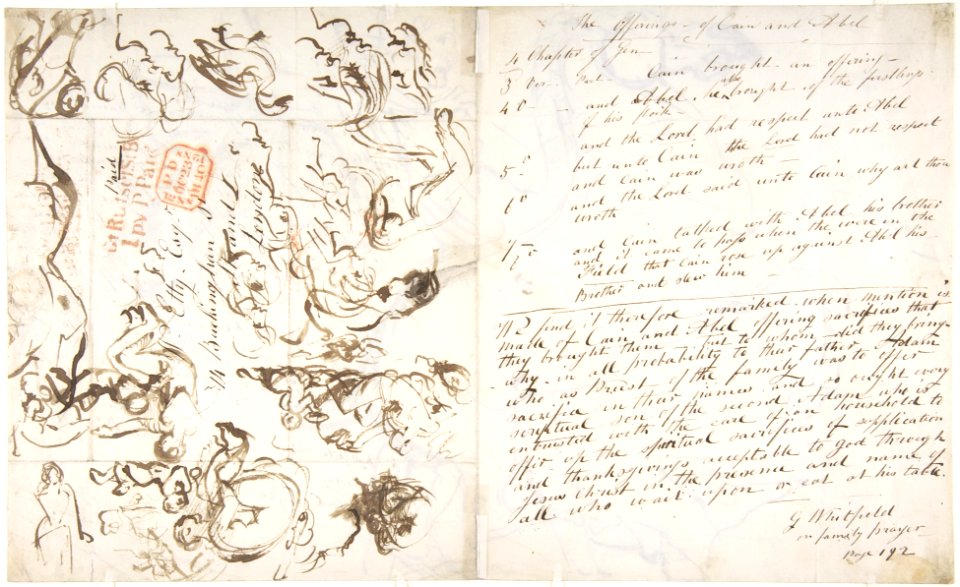 Paid
Gt Russel St
1py P Paid
Etty Esqr
14 Buckingham St
Strand
London
The Offerings - of Cain and Abel
4 Chapter of Gen
3 Ver - Part Cain brought - an offering -
4 Do - - and Abel - he brought of the firstlings
of his flock -
and the Lord had respect unto Abel
5 Do - but unto Cain the Lord had not respect
and Cain was wroth -
6 Do and the Lord said unto Cain why art thou
wroth
and Cain talked with Abel his brother
and it came to pass when the were in the
Field that Cain rose up against Abel his
Brother and slew him -
We find it therefore remarked when mention is
made of Cain and Abel offering sacrifices that
they brought them - but to whom did they bring
why - in all probability to their father Adam
who as Priest - of the family was to offer
sacrifice in their names and so ought every
scriptual son of the second Adam who is
entrusted with the care of an household to
offer up the spiritual sacrifices of supplication
and thanksgivings acceptable to God through
Jesus Christ in the presence and name of
all who wait upon or eat at his table.
G Whitfield
on family prayer
Page 192